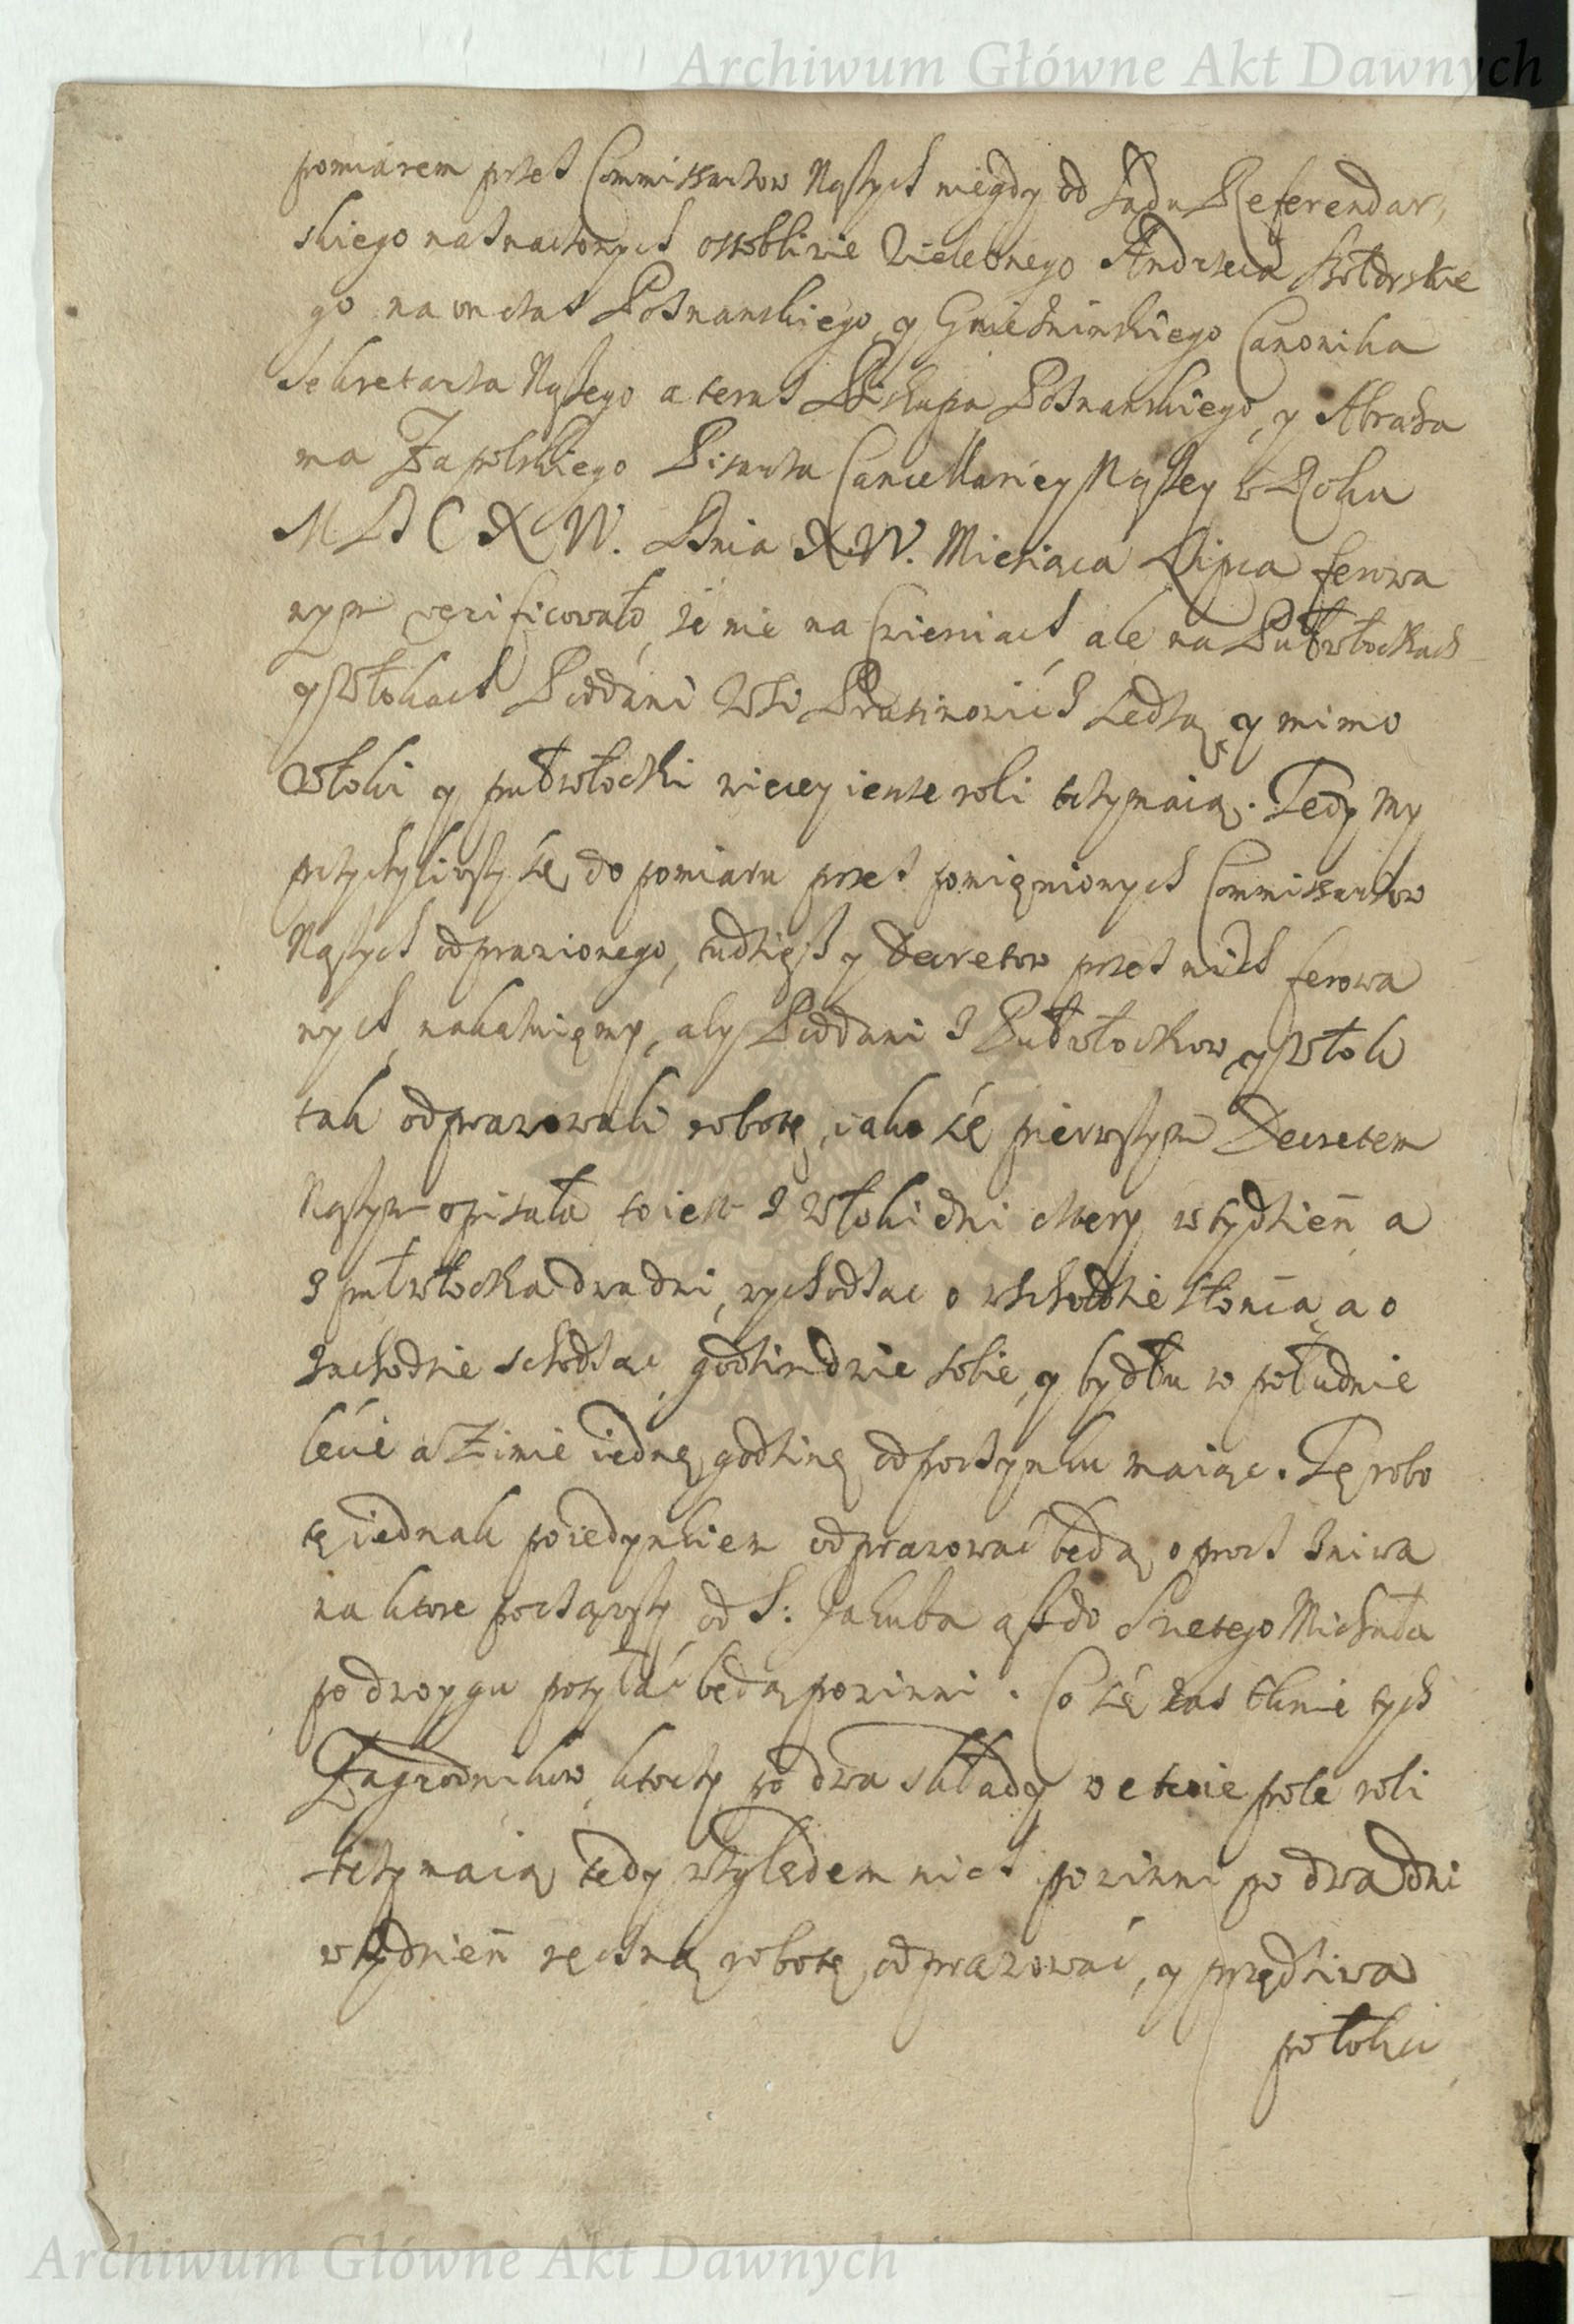 Archiwum Główne Akt Dawnych
pomiarem przez Commissarzow Nąszych niegdy od Sądu Referendar,
skiego naznaczonych ossobliwie Wielebnego Andrzeia Szołdrskie
go na on czas Poznanskiego y Gnieźninskiego Canonika
Sekretarza Nąszego a teraz Biskupa Poznanskiego, y Abraha
ma Zapolskiego Pisarza Cancellariey Nąszey w Roku
Dnia Miesiąca Lipca ferowa
nym verificowało, że nie na Czwierciach ale na Pułwłockach
y Włokach Poddani Wsi siedzą, y mimo
Włoki y pułwłocki więcey ieszcze roli trzymaią. Tedy my
przychyliwszy się do pomiaru przez pomięnionych Commissarzow
Nąszych odprawionego, tudzięsz y Decretow przez nich ferowa
nych nakazuięmy, aby Poddani z Pułwłockow y Włok
tak odprawowali robotę, iako się pierwszym Decretem
Nąszym opisała to iest z Włoki dni cztery w tydzień a
z pułwłocka dwa dni, wychodząc o wschodzie słońca, a o
zachodzie schodząc, godzin dwie sobie, y bydłu w południe
lecie a Zimie iednę godzinę odpoczynku maiąc. Tę robo
tę iednak poiedynkiem odprawować będą, oprocz żniwa
na ktore począwszy od S: Jakuba ąsz do Swietego Michała
po dwoygu posyłać będą powinni. Co się zas tknie tych
Zagrodnikow, ktorzy po dwa składy w etoie pole roli
trzymaią, tedy względem nich powinni po dwa dni
w tydzień ręczną robotę odprawować, y przędziwa
połoku
Archiwum Główne Akt Dawnych